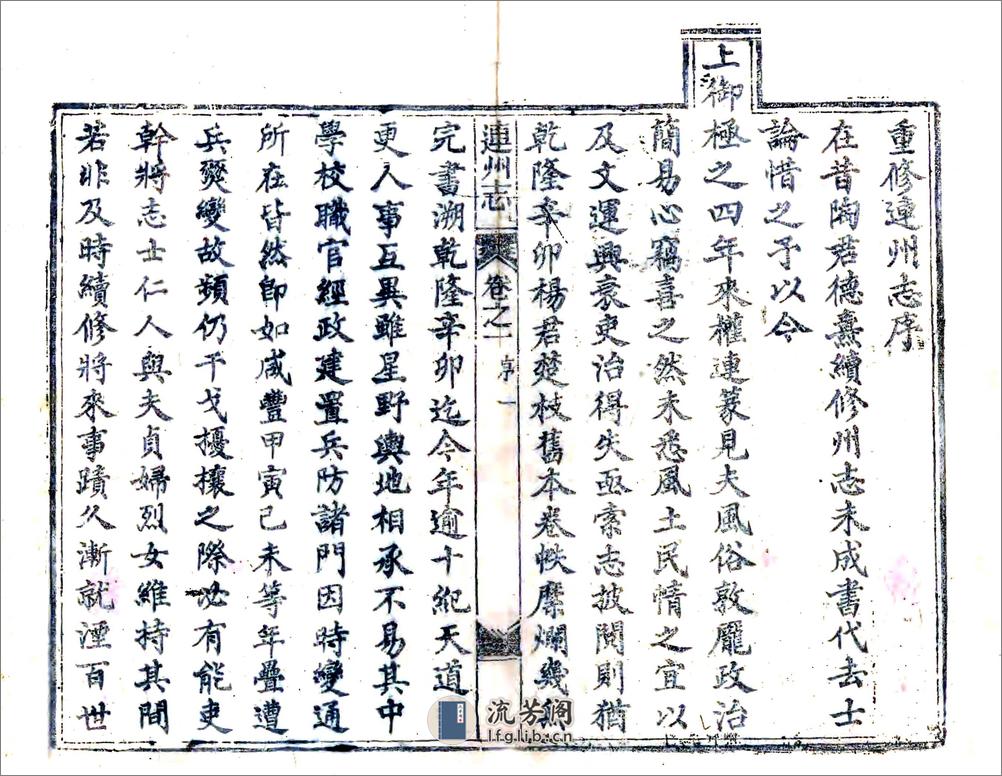 重修連州志序
在昔陶君德燾續修州志未成書代去士
論惜之予以今
上御極之四年來權連篆見夫風俗敦龐政治
簡易心竊喜之然未悉風土民情之宜以
及文運興衰吏治得失亟索志披閱則猶
乾隆辛卯楊君楚枝舊本卷帙糜爛幾無
連州志 卷之一 序 一
完書溯乾隆辛卯迄今年逾十紀天道
更人事互異雖星野輿地相承不易其中
學校職官經政建置兵防諸門因時變通
所在皆然即如咸豐甲寅己未等年疊遭
兵燹變故頻仍干戈擾攘之際必有能吏
幹將志士仁人與夫貞婦烈女維持其間
若非及時續修將來事蹟久漸就湮百世
流芳閣
lfglib.cn